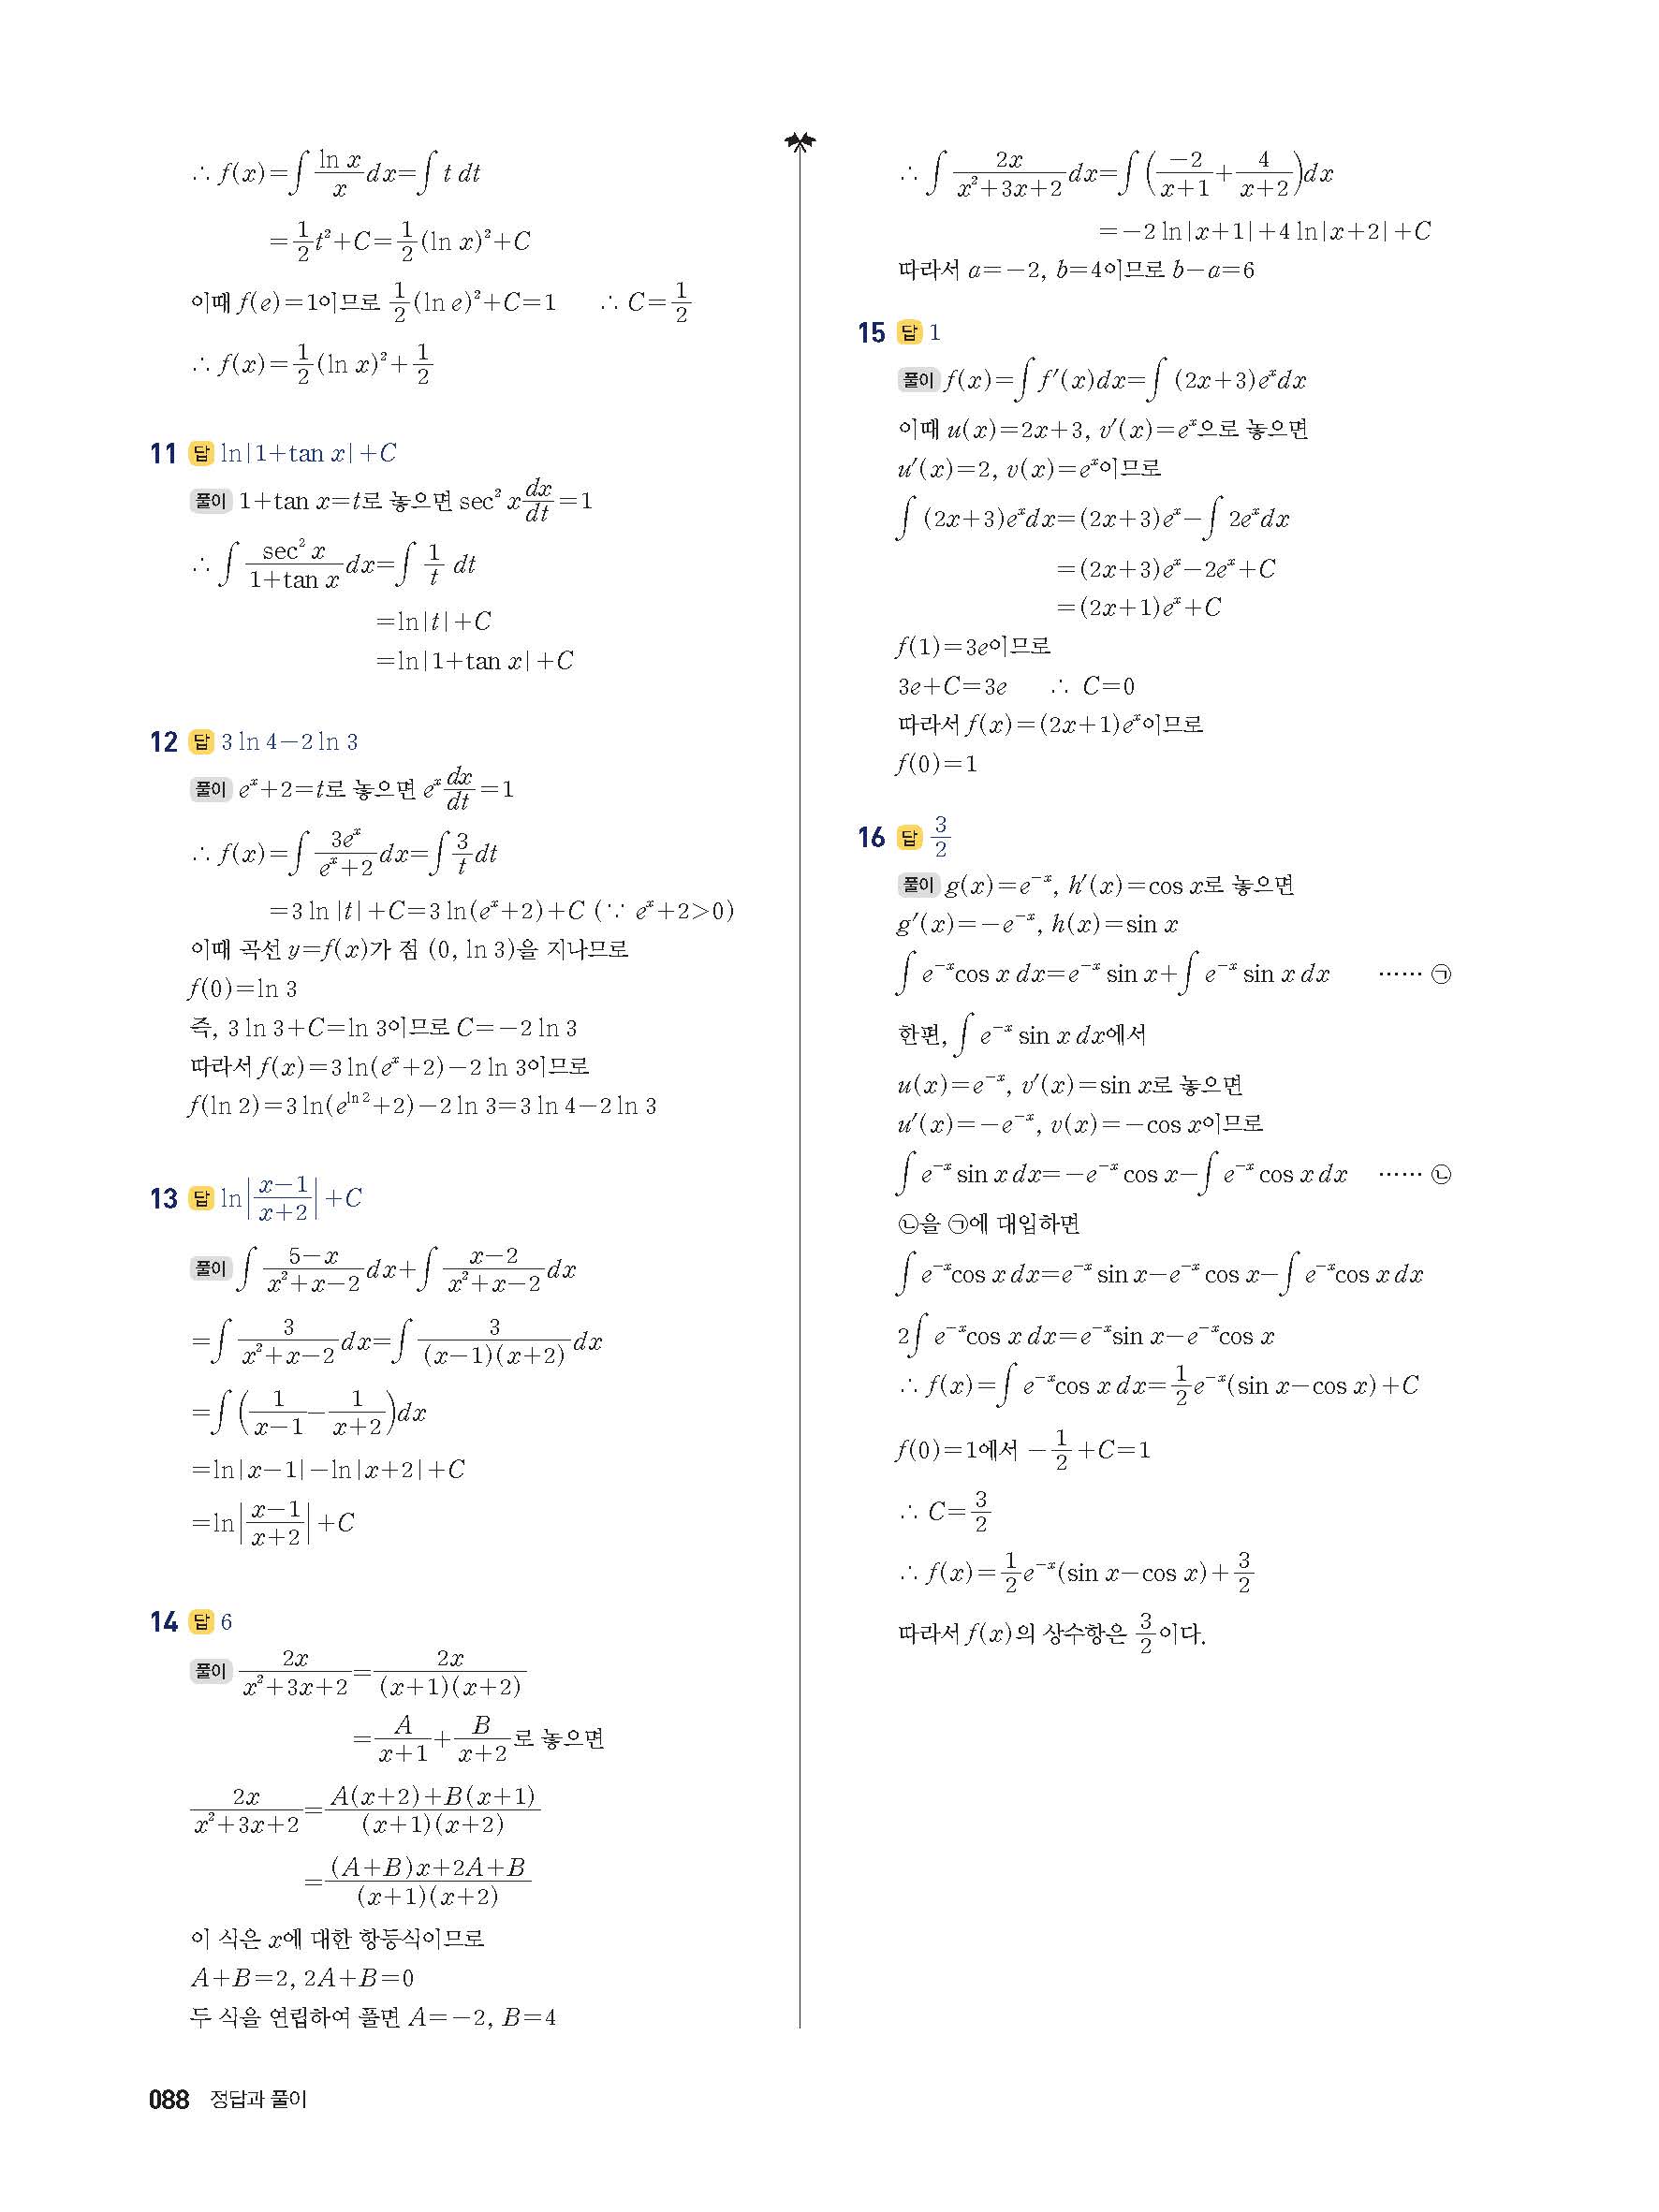 ∴ f(x)=∫ (ln x)/x dx=∫ t dt
=1/2 t²+C=1/2 (ln x)²+C
이때 f(e)=1이므로 1/2 (ln e)²+C=1 ∴ C=1/2
∴ f(x)=1/2 (ln x)²+1/2
11 답 ln|1+tan x|+C
풀이 1+tan x=t로 놓으면 sec² x dx/dt=1
∴ ∫ (sec² x)/(1+tan x) dx=∫ 1/t dt
=ln|t|+C
=ln|1+tan x|+C
12 답 3 ln 4−2 ln 3
풀이 eˣ+2=t로 놓으면 eˣ dx/dt=1
∴ f(x)=∫ 3eˣ/(eˣ+2) dx=∫ 3/t dt
=3 ln |t|+C=3 ln(eˣ+2)+C (∵ eˣ+2>0)
이때 곡선 y=f(x)가 점 (0, ln 3)을 지나므로
f(0)=ln 3
즉, 3 ln 3+C=ln 3이므로 C=−2 ln 3
따라서 f(x)=3 ln(eˣ+2)−2 ln 3이므로
f(ln 2)=3 ln(e^(ln 2)+2)−2 ln 3=3 ln 4−2 ln 3
13 답 ln|(x−1)/(x+2)|+C
풀이 ∫ (5−x)/(x²+x−2) dx+∫ (x−2)/(x²+x−2) dx
=∫ 3/(x²+x−2) dx=∫ 3/((x−1)(x+2)) dx
=∫ (1/(x−1)−1/(x+2))dx
=ln|x−1|−ln|x+2|+C
=ln|(x−1)/(x+2)|+C
14 답 6
풀이 2x/(x²+3x+2)=2x/((x+1)(x+2))
=A/(x+1)+B/(x+2)로 놓으면
2x/(x²+3x+2)=(A(x+2)+B(x+1))/((x+1)(x+2))
=((A+B)x+2A+B)/((x+1)(x+2))
이 식은 x에 대한 항등식이므로
A+B=2, 2A+B=0
두 식을 연립하여 풀면 A=−2, B=4
∴ ∫ 2x/(x²+3x+2) dx=∫ (−2/(x+1)+4/(x+2))dx
=−2 ln|x+1|+4 ln|x+2|+C
따라서 a=−2, b=4이므로 b−a=6
15 답 1
풀이 f(x)=∫ f′(x)dx=∫ (2x+3)eˣdx
이때 u(x)=2x+3, v′(x)=eˣ으로 놓으면
u′(x)=2, v(x)=eˣ이므로
∫ (2x+3)eˣdx=(2x+3)eˣ−∫ 2eˣdx
=(2x+3)eˣ−2eˣ+C
=(2x+1)eˣ+C
f(1)=3e이므로
3e+C=3e ∴ C=0
따라서 f(x)=(2x+1)eˣ이므로
f(0)=1
16 답 3/2
풀이 g(x)=e⁻ˣ, h′(x)=cos x로 놓으면
g′(x)=−e⁻ˣ, h(x)=sin x
∫ e⁻ˣcos x dx=e⁻ˣ sin x+∫ e⁻ˣ sin x dx ⋯⋯ ㉠
한편, ∫ e⁻ˣ sin x dx에서
u(x)=e⁻ˣ, v′(x)=sin x로 놓으면
u′(x)=−e⁻ˣ, v(x)=−cos x이므로
∫ e⁻ˣ sin x dx=−e⁻ˣ cos x−∫ e⁻ˣ cos x dx ⋯⋯ ㉡
㉡을 ㉠에 대입하면
∫ e⁻ˣcos x dx=e⁻ˣ sin x−e⁻ˣ cos x−∫ e⁻ˣcos x dx
2∫ e⁻ˣcos x dx=e⁻ˣsin x−e⁻ˣcos x
∴ f(x)=∫ e⁻ˣcos x dx=1/2 e⁻ˣ(sin x−cos x)+C
f(0)=1에서 −1/2+C=1
∴ C=3/2
∴ f(x)=1/2 e⁻ˣ(sin x−cos x)+3/2
따라서 f(x)의 상수항은 3/2이다.
088 정답과 풀이